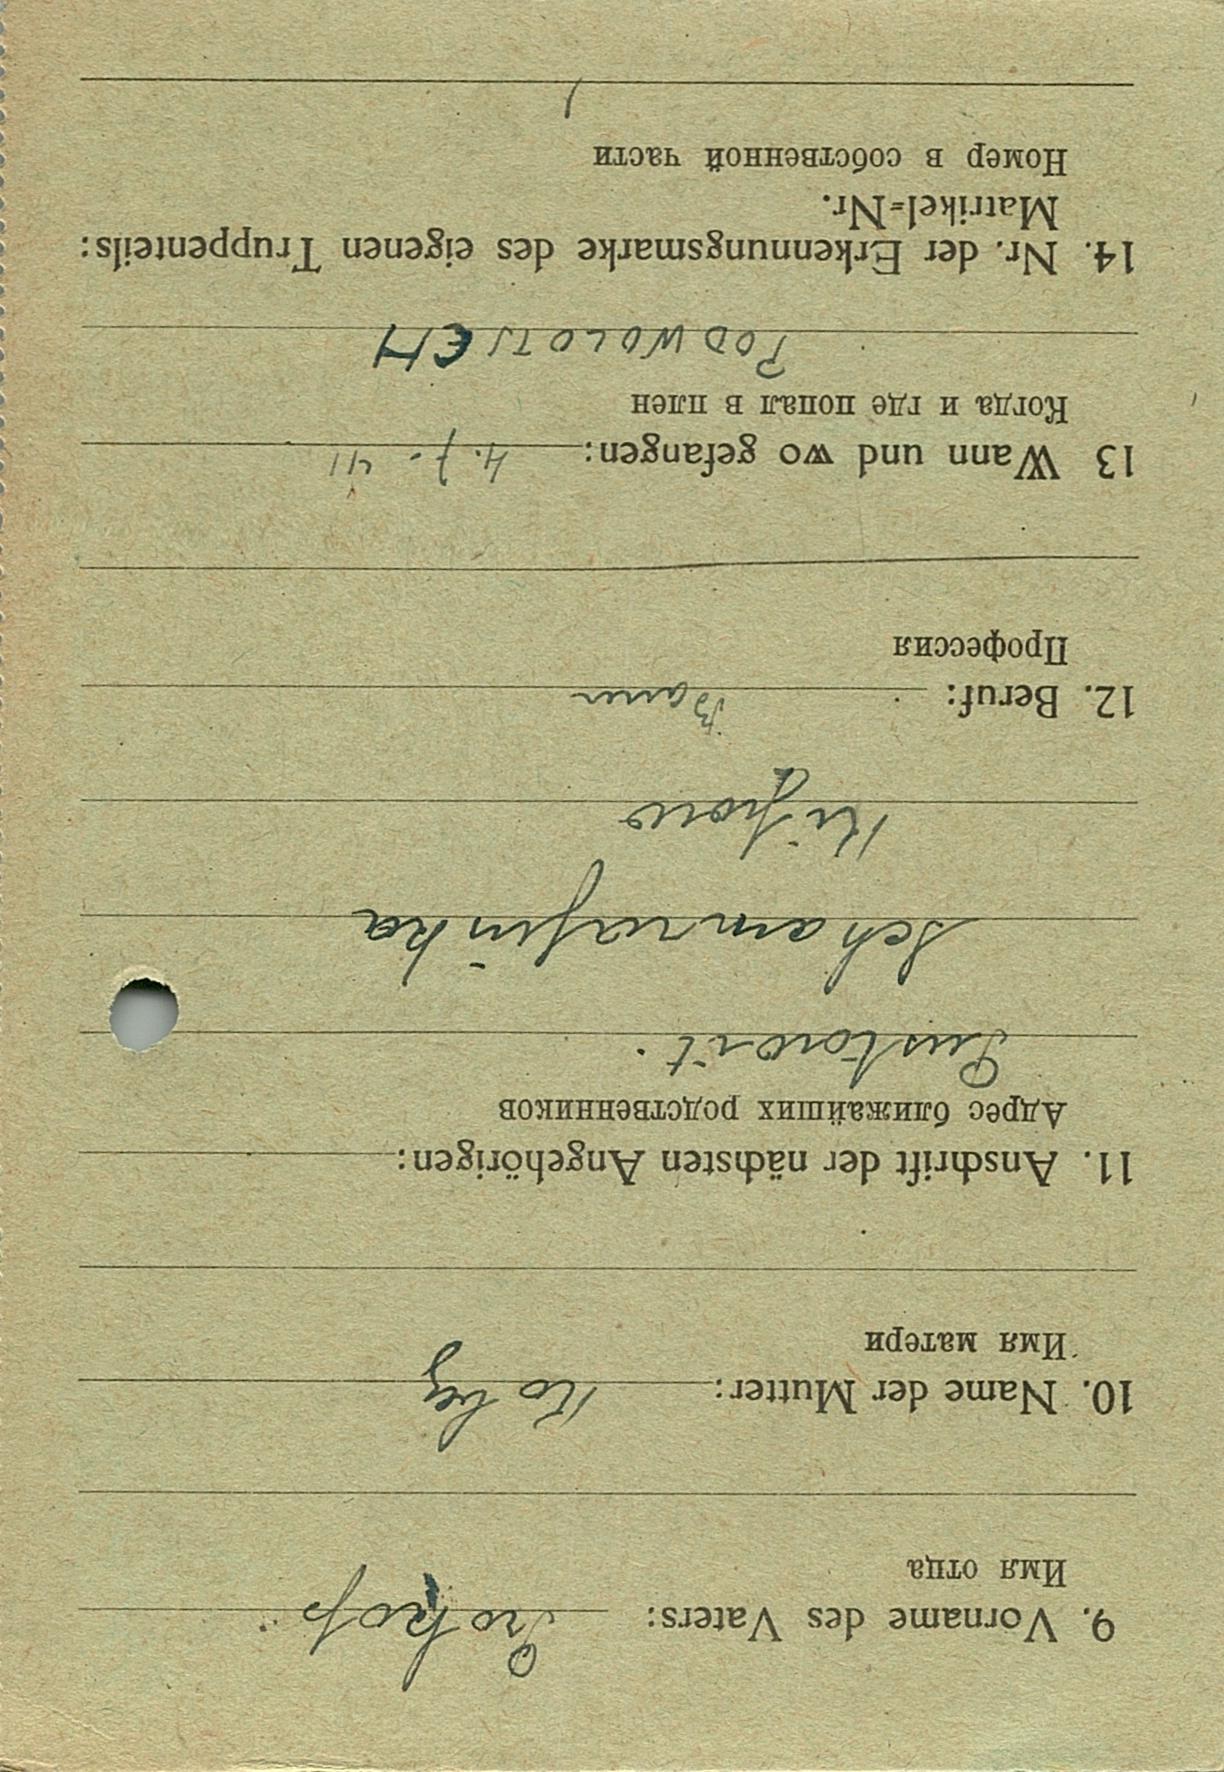 9. Vorname des Vaters: Prokop
Имя отца
10. Name der Mutter:
Имя матери
11. Anschrift der nächsten Angehörigen:
Адрес ближайших родственников
12. Beruf: Bauer
Профессия
13 Wann und wo gefangen: 4. 7. 41
Когда и где попал в плен
PODWOLOTSCH
14. Nr. der Erkennungsmarke des eigenen Truppenteils:
Matrikel=Nr.
Номер в собственной части